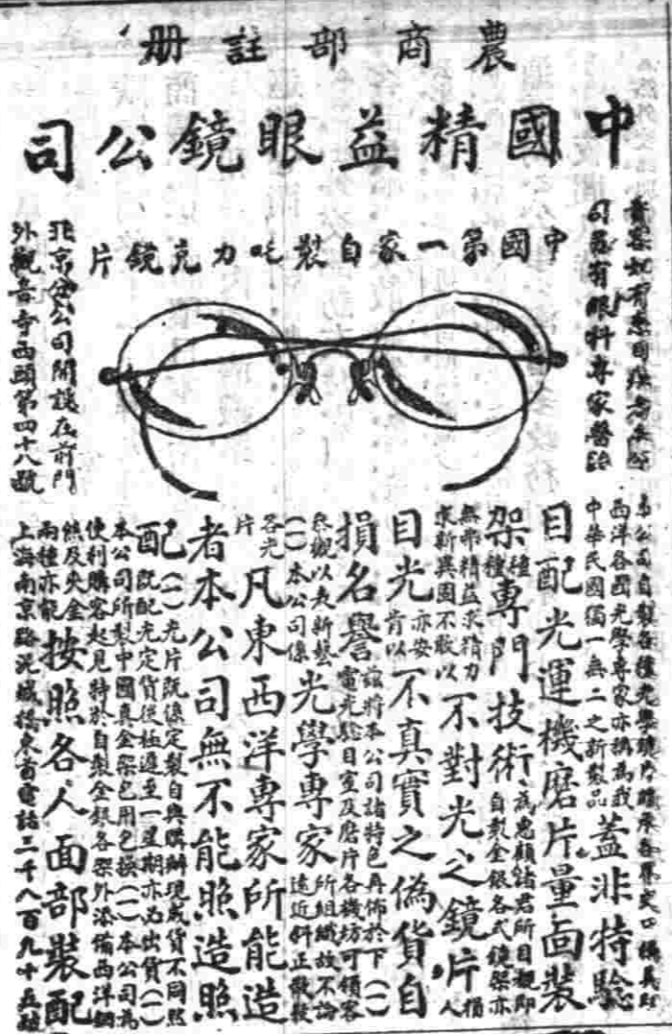 農商部註册
中國精益眼鏡公司
貴客如有患目疾者本公
司另有眼科專家醫治
中國第一家自製吒力克鏡片
北京分公司開設在前門
外觀音寺西頭第四十八號
本公司自製各種光學鏡片
西洋各國光學專家亦稱為我
中華民國獨一無二之新製品
蓋非特驗
目配光運機磨片量面裝
架種種專門技術為惠顧諸君所目覩即
自製金銀各式鏡架亦
無弗精益求精力
求新異固不敢以
不對光之鏡片損人
目光亦安
肯以
不真實之偽貨自
損名譽茲將本公司諸特色再佈於下(一)
電光驗目室及磨片各機坊可領客
參觀以表新藝
(一)本公司係
光學專家所組織故不論
遠近斜正散發
各光
片
凡東西洋專家所能造
者本公司無不能照造照
配(一)光片既係定製自與購辦現成貨不同然
既配光定貨從極遲至一星期亦必出貨(一)
本公司所製中國真金架包用包換(一)本公司為
便利購客起見特於自製金銀各架外添備西洋鋼
絲及夾金
兩種亦能
按照各人面部裝配
上海南京路泥城橋東首電話三千八百九十五號